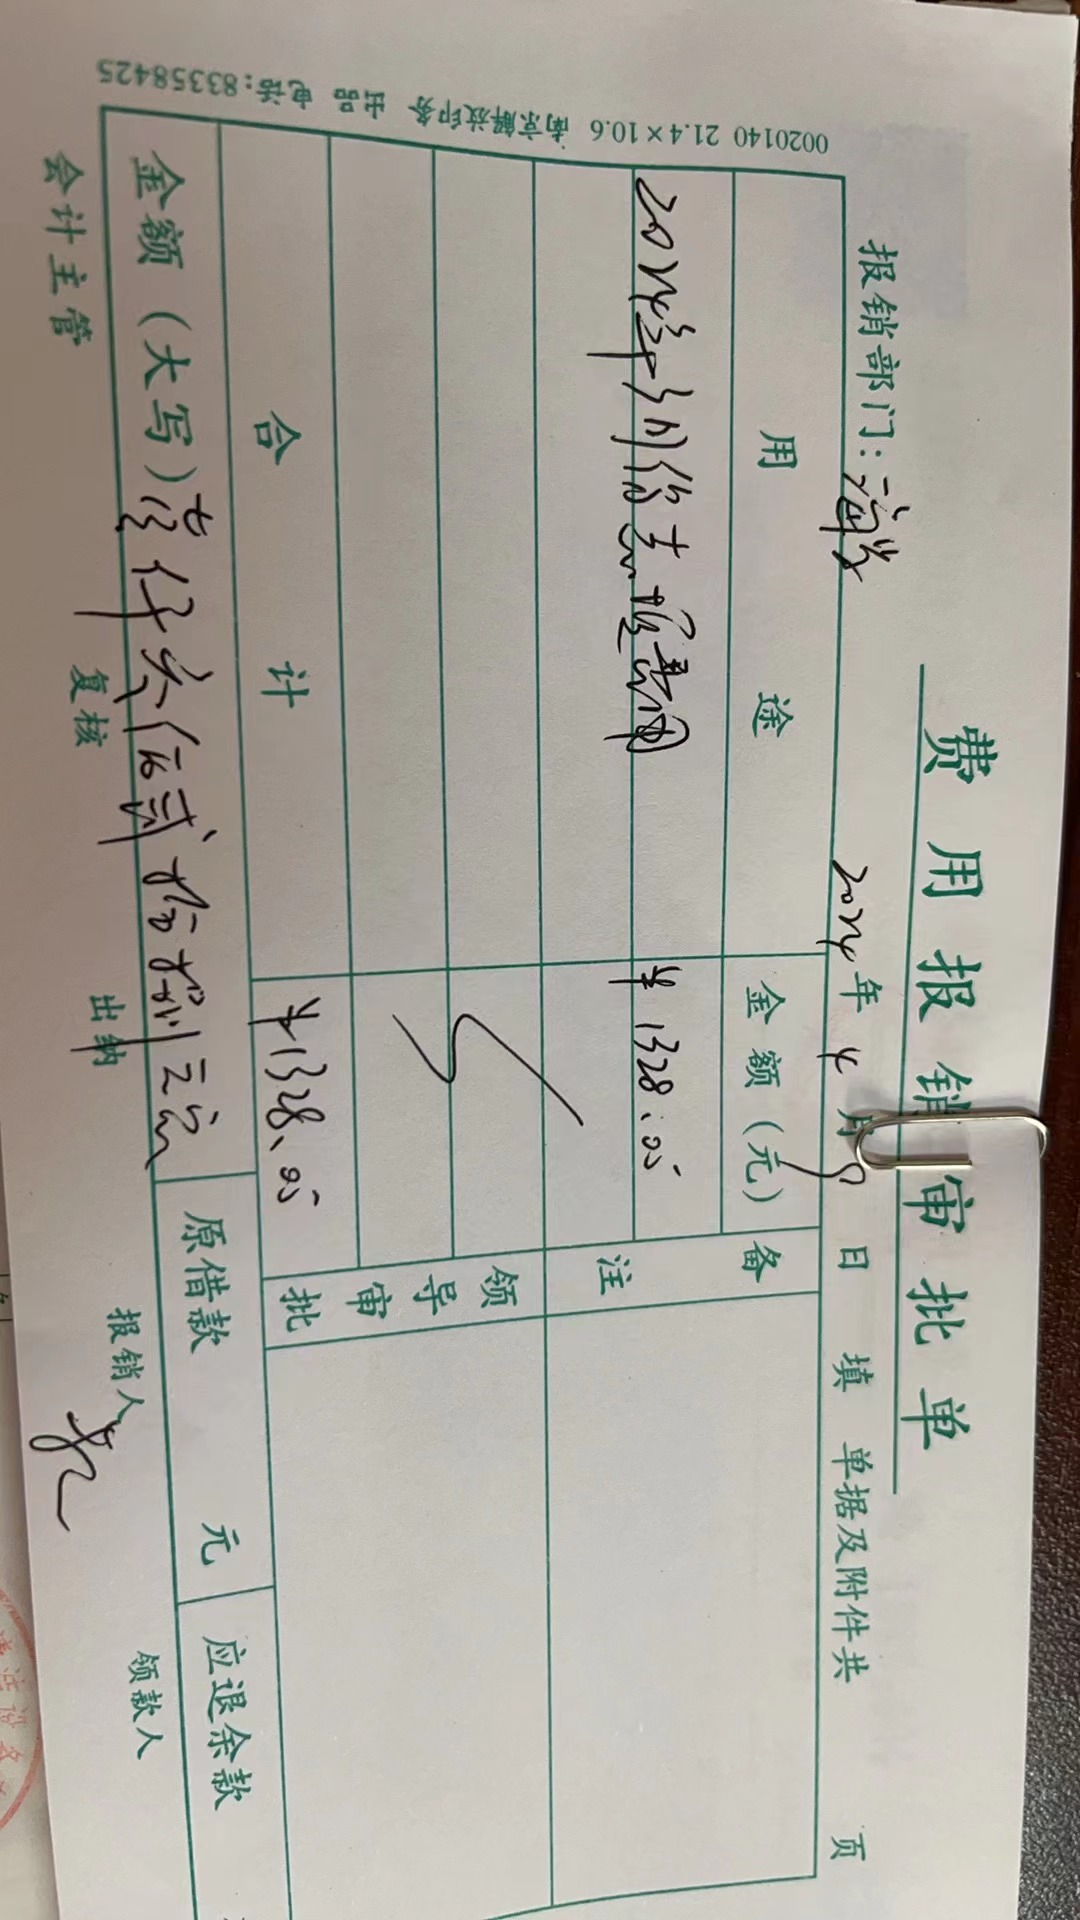 费用报销审批单
报销部门: 2024年4月9日填 单据及附件共 页
用途 金额(元) 备注
2024年3月 ¥1328.05
领导审批
合计 ¥1328.05
金额(大写)壹仟 佰贰拾捌元 原借款 元 应退余款
会计主管 复核 出纳 报销人 领款人
0020140 21.4×10.6 南京解放印务 出品 电话:83358425